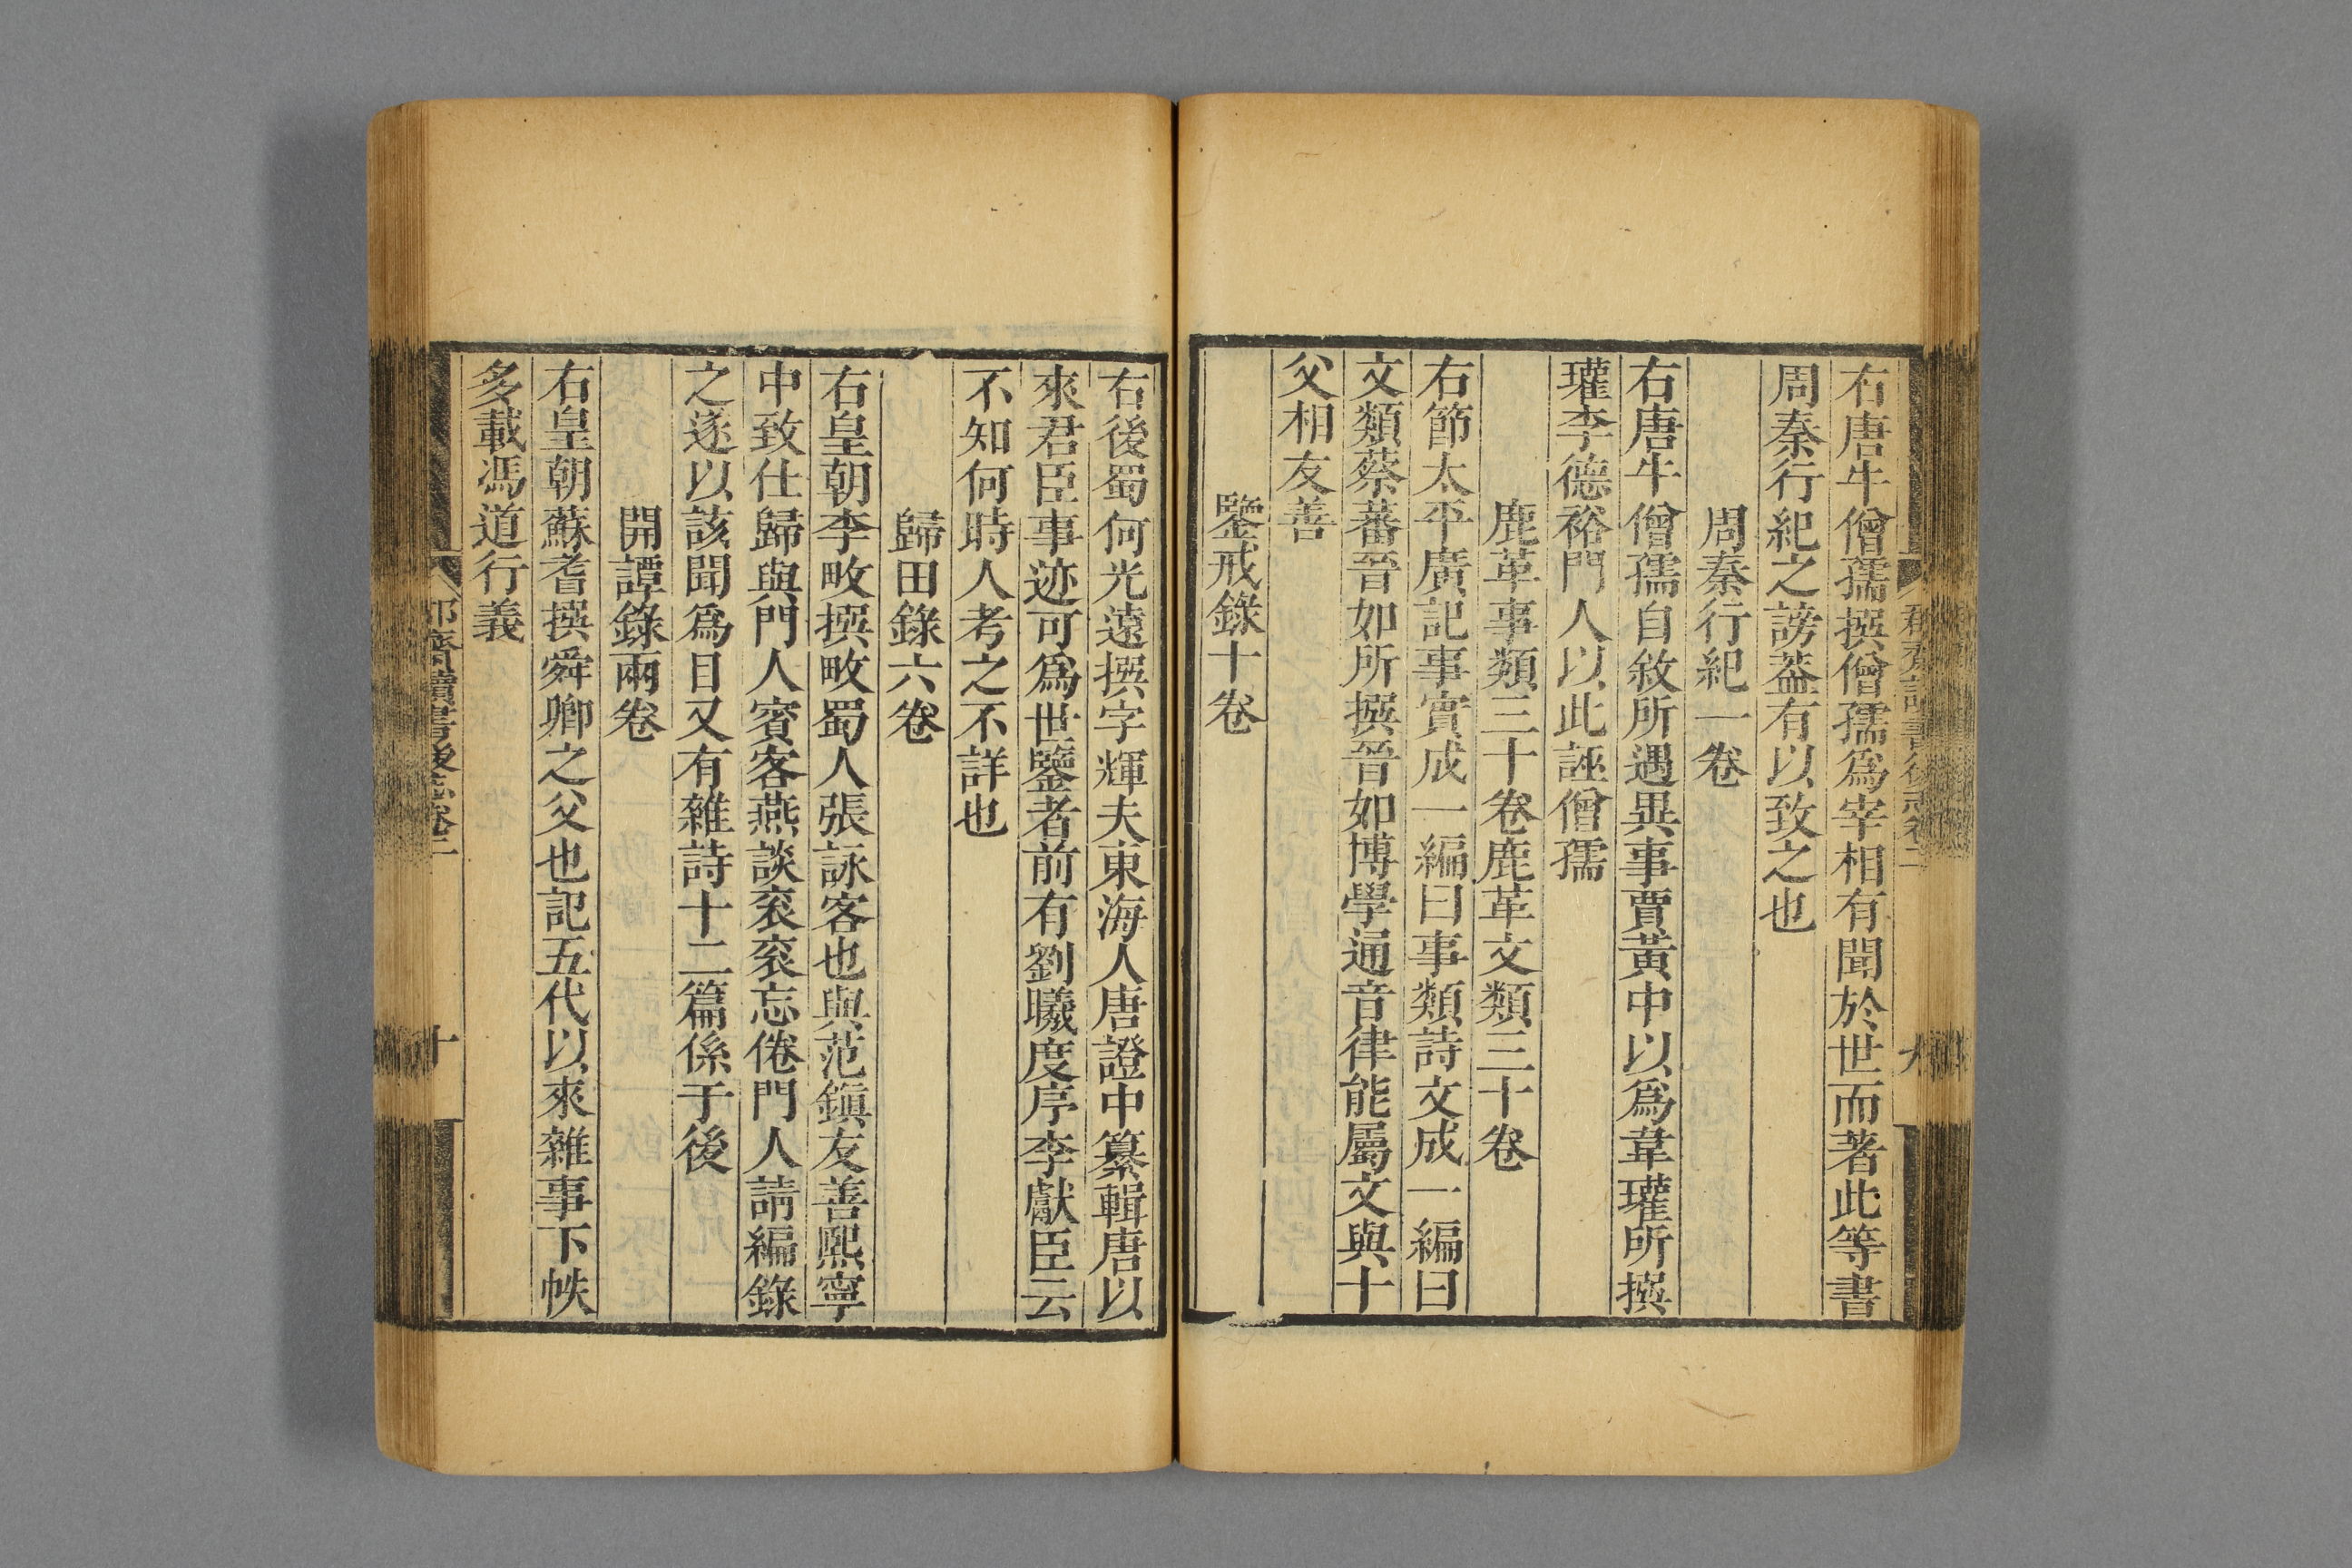 右唐牛僧孺撰僧孺爲宰相有聞於世而著此等書
周秦行紀之謗葢有以致之也
周秦行紀一卷
右唐牛僧孺自敘所遇異事賈黃中以爲韋瓘所撰
瓘李德裕門人以此誣僧孺
鹿革事類三十卷鹿革文類三十卷
右節太平廣記事實成一編曰事類詩文成一編曰
文類蔡蕃晉如所撰晉如博學通音律能屬文與十
父相友善
鑒戒錄十卷
右後蜀何光遠撰字輝夫東海人唐證中纂輯唐以
來君臣事迹可爲世鑒者前有劉曦度序李獻臣云
不知何時人考之不詳也
歸田錄六卷
右皇朝李畋撰畋蜀人張詠客也與范鎭友善熙寧
中致仕歸與門人賓客燕談衮衮忘倦門人請編錄
之遂以該聞爲目又有雜詩十二篇係于後
開譚錄兩卷
右皇朝蘇耆撰舜卿之父也記五代以來雜事下帙
多載馮道行義
齋讀書後志卷二
十